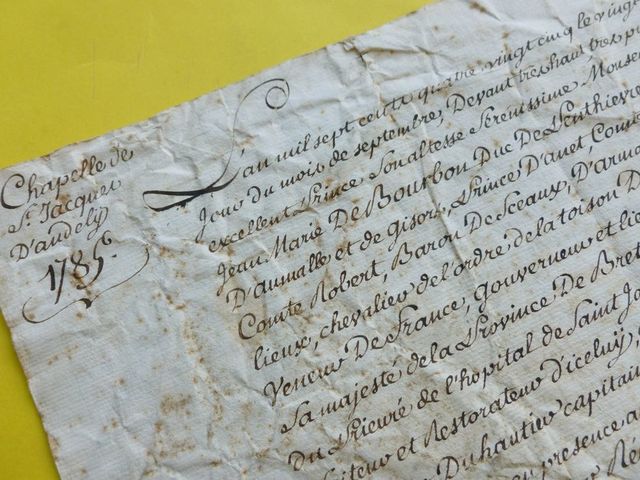 Chapelle de
St. Jacques
D'andely
1785.
L'an mil sept cents quatre vingt cinq le vingt
Jour du mois de septembre, Devant tres haut tres
excellent Prince Son altesse Serenissime Monse
Jean Marie De Bourbon Duc De Penthievre
D'aumalle et de gisors, Prince D'anet, Comte
Comte Robert, Baron De Sceaux, D'arma
lieux, chevalier de l'ordre, de la toison D
Veneur De France, gouverneur et lie
Sa majeste de la Province De Bret
Du Prieuré de l'hopital de Saint J
et Restorateur d'iceluy,
Duhautier capitai
presence